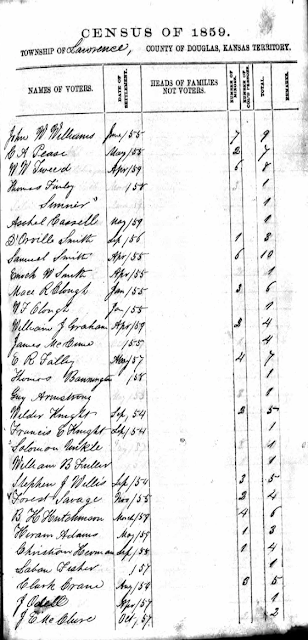 CENSUS OF 1859.
TOWNSHIP OF Lawrence, COUNTY OF DOUGLAS, KANSAS TERRITORY.
NAMES OF VOTERS. DATE OF SETTLEMENT. HEADS OF FAMILIES NOT VOTERS. NUMBER OF MINORS. NUMBER OF COL'D PERSONS. TOTAL. REMARKS.
John W Williams June/55 7 9
C A Pease May/55 2 7
W W Tweed Apr/59 6 8
Thomas Finley /58 1
Simner 1
Ashel Cassell May/59 1
D'Orville Smith Sep/56 1 3
Samuel Smith Apr/55 6 10
Enoch W Smith Apr/55 1
Mace R Clough Jan/55 3 6
W F Clough Jan/55 1
William J Graham Apr/59 2 4
James McCune /55 4
E R Falley May/57 4 7
Thomas Bannington /58 1
Guy Armstrong 1
Wilder Knight Sep/54 2 5
Francis C Knight Sep/54 1
Solomon Unkle 1
William B Fuller 1
Stephen J Willis Sep/54 3 5
Forest Savage Nov/55 2 4
B H Hutchinson March/57 4 6
Hiram Adams May/57 1 3
Christian Herman Sep/58 1 4
Laban Fisher /57 1
Clark Crane Aug/58 3 5
J Odell Apr/57 1
J E McClure Oct/57 2